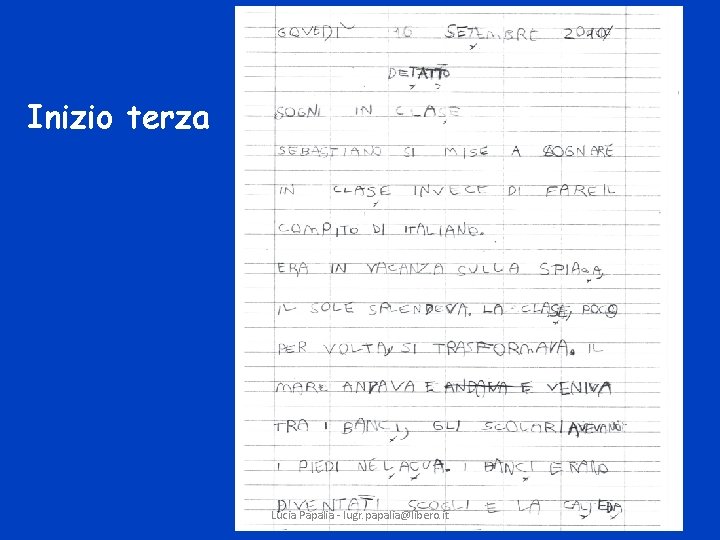 Inizio terza
GOVEDI' 16 SETEMBRE 2010
DETATTO
SOGNI IN CLASE
SEBASTIANO SI MISE A SOGNARE
IN CLASE INVECE DI FARE IL
COMPITO DI ITALIANO.
ERA IN VACANZA SULLA SPIAGA,
IL SOLE SPLENDEVA. LA CLASE, POCO
PER VOLTA, SI TRASFORMAVA. IL
MARE ANDAVA E ANDAVA E VENIVA
TRA I BANCI, GLI SCOLARI AVEVANO
I PIEDI NELACUA. I BANCI ERANO
DIVENTATI SCOGLI E LA CATEDA
Lucia Papalia - lugr.papalia@libero.it